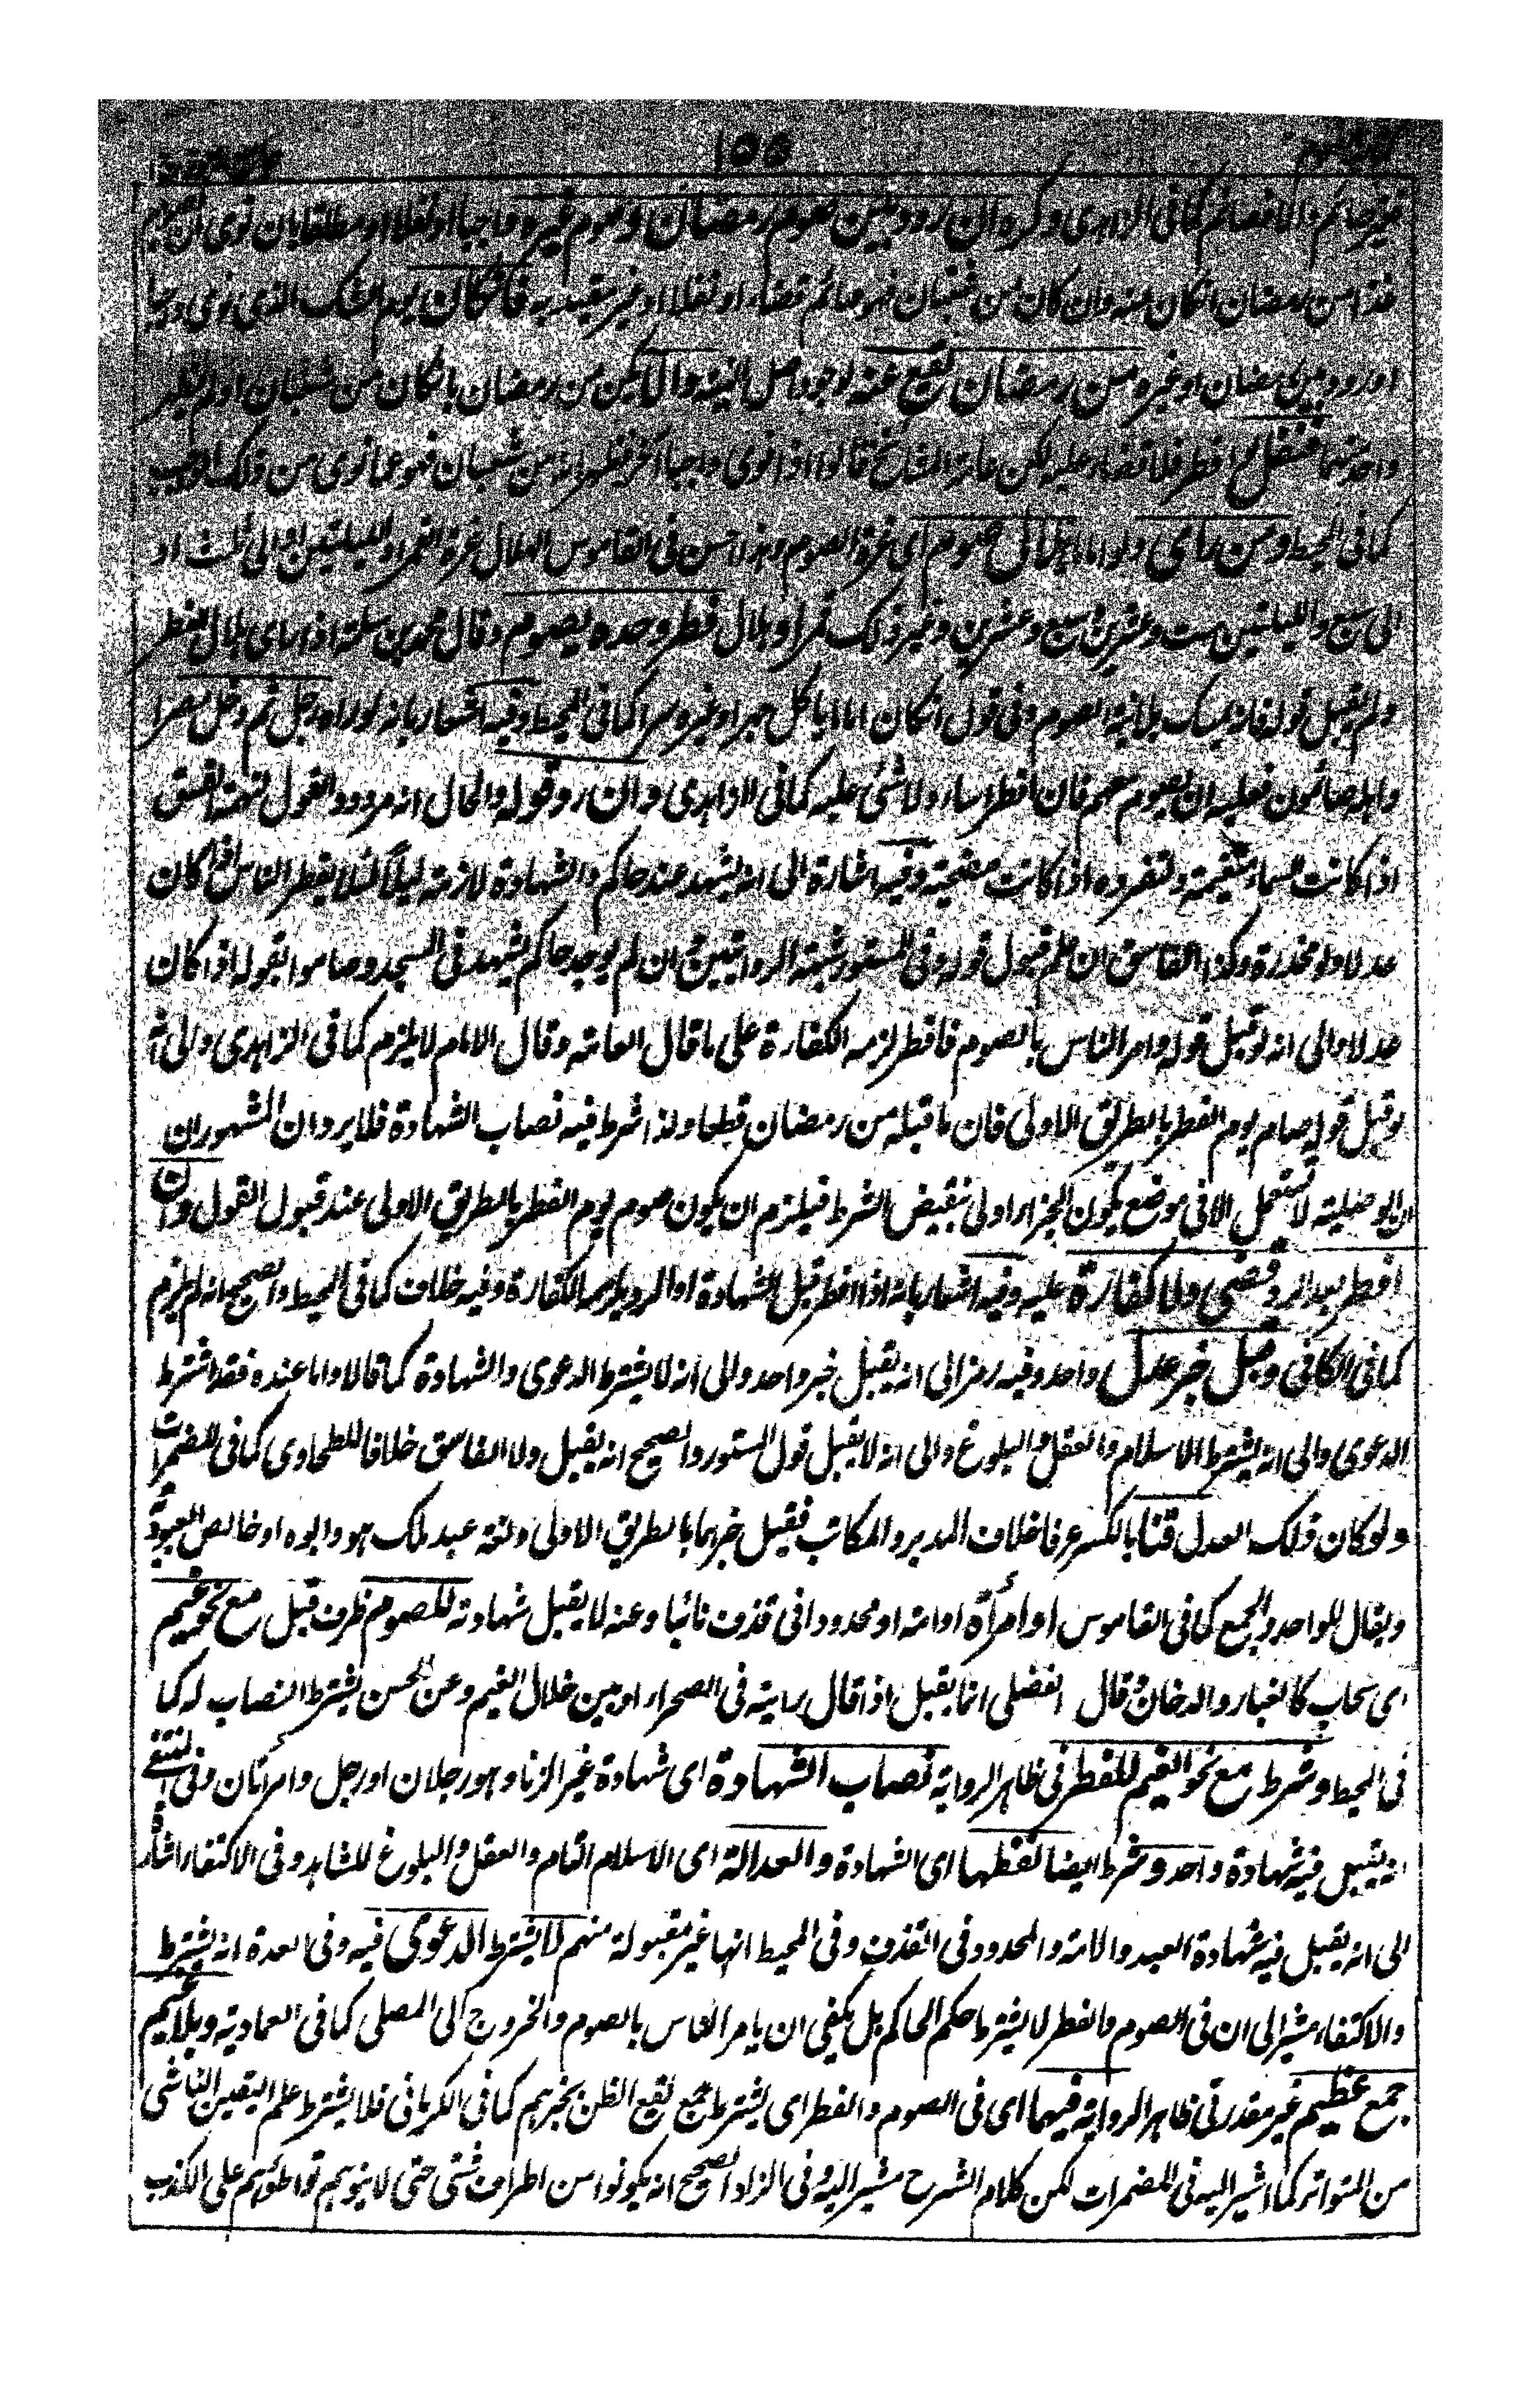 كتاب الصوم ١٥٥
فصائم والا فصائم كما فى الزاهدى وكره ان ردد بين صوم رمضان وصوم غيره واجبا او نفلا او مطلقا بان نوى ان يصوم
غدا من رمضان انكان منه وان كان من شعبان فهو صائم قضاء او نفلا او غير مقيد به فانكان يوم الشك الذى نوى
او ردد بين رمضان او غيره من رمضان يقع عنه لوجود اصل النية والا يكن من رمضان بانكان من شعبان او لم يظهر
واحد منهما فنفل لو افطر فلا قضاء عليه لكن عامة المشائخ قالوا اذا نوى واجبا آخر فظهر انه من شعبان فهو عما نوى من ذلك الواجب
كما فى المحيط ومن راى ولو اماما هلال صوم اى غرة الصوم وهذا احسن فى القاموس الهلال غرة القمر او لليلتين او الى ثلث او
الى سبع ولليلتين ست وعشرين سبع وعشرين وغير ذلك قمر او هلال فطر وحده يصوم وقال محمد بن سلمة اذا راى هلال الفطر
ولم يقبل قوله فانه يمسك بلا نية الصوم وفى قول انكان اماما ياكل جهرا وغيره سرا كما فى المحيط وفيه اشعار بانه لو راه رجل ثم دخل مصرا
واهله صائمون فعليه ان يصوم معهم فان افطر اساء ولا شئ عليه كما فى الزاهدى وان رد قوله والحال انه مردود القول لتهمة الفسق
اذا كانت السماء متغيمة ولتفرده اذا كانت مصحية وفيه اشارة الى انه يشهد عند حاكم والشهادة لازمة ليلا لئلا يفطر الناس اذا كان
عدلا ولو مخدرة وكذا الفاسق ان علم قبول قوله وفى المستور شبهة الروايتين وان لم يوجد حاكم يشهد فى المسجد وصاموا بقوله اذا كان
عدلا والى انه لو قبل قوله وامر الناس بالصوم فافطر لزمه الكفارة على ما قال العامة وقال الامام لا يلزم كما فى الزاهدى والى انه
لو قبل قوله صام يوم الفطر بالطريق الاولى فان ما قبله من رمضان قطعا ولذا شرط فيه نصاب الشهادة فلا يرد ان المشهور ان
ان الوصلية لا تستعمل الا فى موضع يكون الجزاء اولى بنقيض الشرط فيلزم ان يكون صوم يوم الفطر بالطريق الاولى عند قبول القول وان
افطر بعد الرد قضى ولا كفارة عليه وفيه اشعار بانه اذا افطر قبل الشهادة او الرد يلزمه الكفارة وفيه خلاف كما فى المحيط والصحيح انه لم يلزم
كما فى الكافى وقبل خبر عدل واحد وفيه رمز الى انه يقبل خبر واحد والى انه لا يشترط الدعوى والشهادة كما قالا واما عنده فقد اشترط
الدعوى والى انه يشترط الاسلام والعقل والبلوغ والى انه لا يقبل قول المستور والصحيح انه يقبل ولا الفاسق خلافا للطحاوى كما فى المضمرات
ولو كان ذلك العدل قنا بالكسر عرفا خلاف المدبر والمكاتب فقبل خبرهما بالطريق الاولى ولغة عبد ملك هو وابوه او خالص العبودة
ويقال للواحد والجمع كما فى القاموس او امرأة او امة او محدودا فى قذف تائبا وعنه لا يقبل شهادته للصوم ظرف قبل مع نحو غيم
اى سحاب كالغبار والدخان وقال الفضلى انما يقبل اذا قال رايته فى الصحراء او بين خلال الغيم وعن الحسن يشترط النصاب له كما
فى المحيط وشرط مع نحو الغيم للفطر فى ظاهر الرواية نصاب الشهادة اى شهادة غير الزنا وهو رجلان او رجل وامرأتان وفى المنتقى
انه يقبل فيه شهادة واحد وشرط ايضا لفظها اى الشهادة والعدالة اى الاسلام التام والعقل والبلوغ للشاهد وفى الاكتفاء اشارة
الى انه يقبل فيه شهادة العبد والامة والمحدود فى القذف وفى المحيط انها غير مقبولة منهم لا يشترط الدعوى فيه وفى العدة انه يشترط
والاكتفاء مشير الى ان فى الصوم والفطر لا يشترط حكم الحاكم بل يكفى ان يامر الناس بالصوم والخروج الى المصلى كما فى العمادية وبلا غيم
جمع عظيم غير مقدر فى ظاهر الرواية فيهما اى فى الصوم والفطر اى يشترط جمع يقع الظن بخبرهم كما فى الكرمانى فلا يشترط علم اليقين الناشى
من المتواتر كما اشير اليه فى المضمرات لكن كلام الشرح مشير اليه وفى الزاد الصحيح انه يكونوا من اطراف شتى حتى لا يتوهم تواطؤهم على الكذب